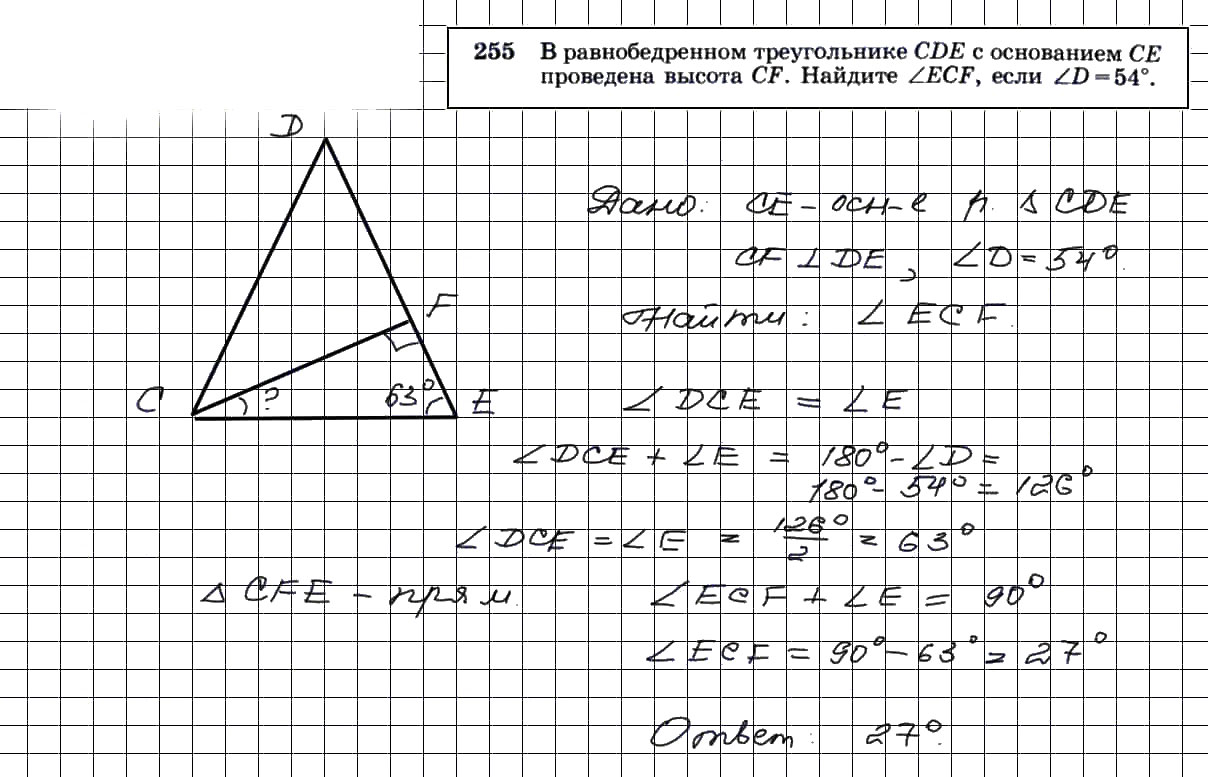 255 В равнобедренном треугольнике CDE с основанием CE
проведена высота CF. Найдите ∠ECF, если ∠D = 54°.
D
F
C
?
63°
E
Дано: CE - осн-е р. Δ CDE
CF ⊥ DE, ∠D = 54°.
Найти: ∠ ECF.
∠ DCE = ∠ E
∠ DCE + ∠ E = 180° - ∠D =
180° - 54° = 126°
∠ DCE = ∠ E = 126°/2 = 63°
Δ CFE - прям.
∠ ECF + ∠ E = 90°
∠ ECF = 90° - 63° = 27°
Ответ: 27°.